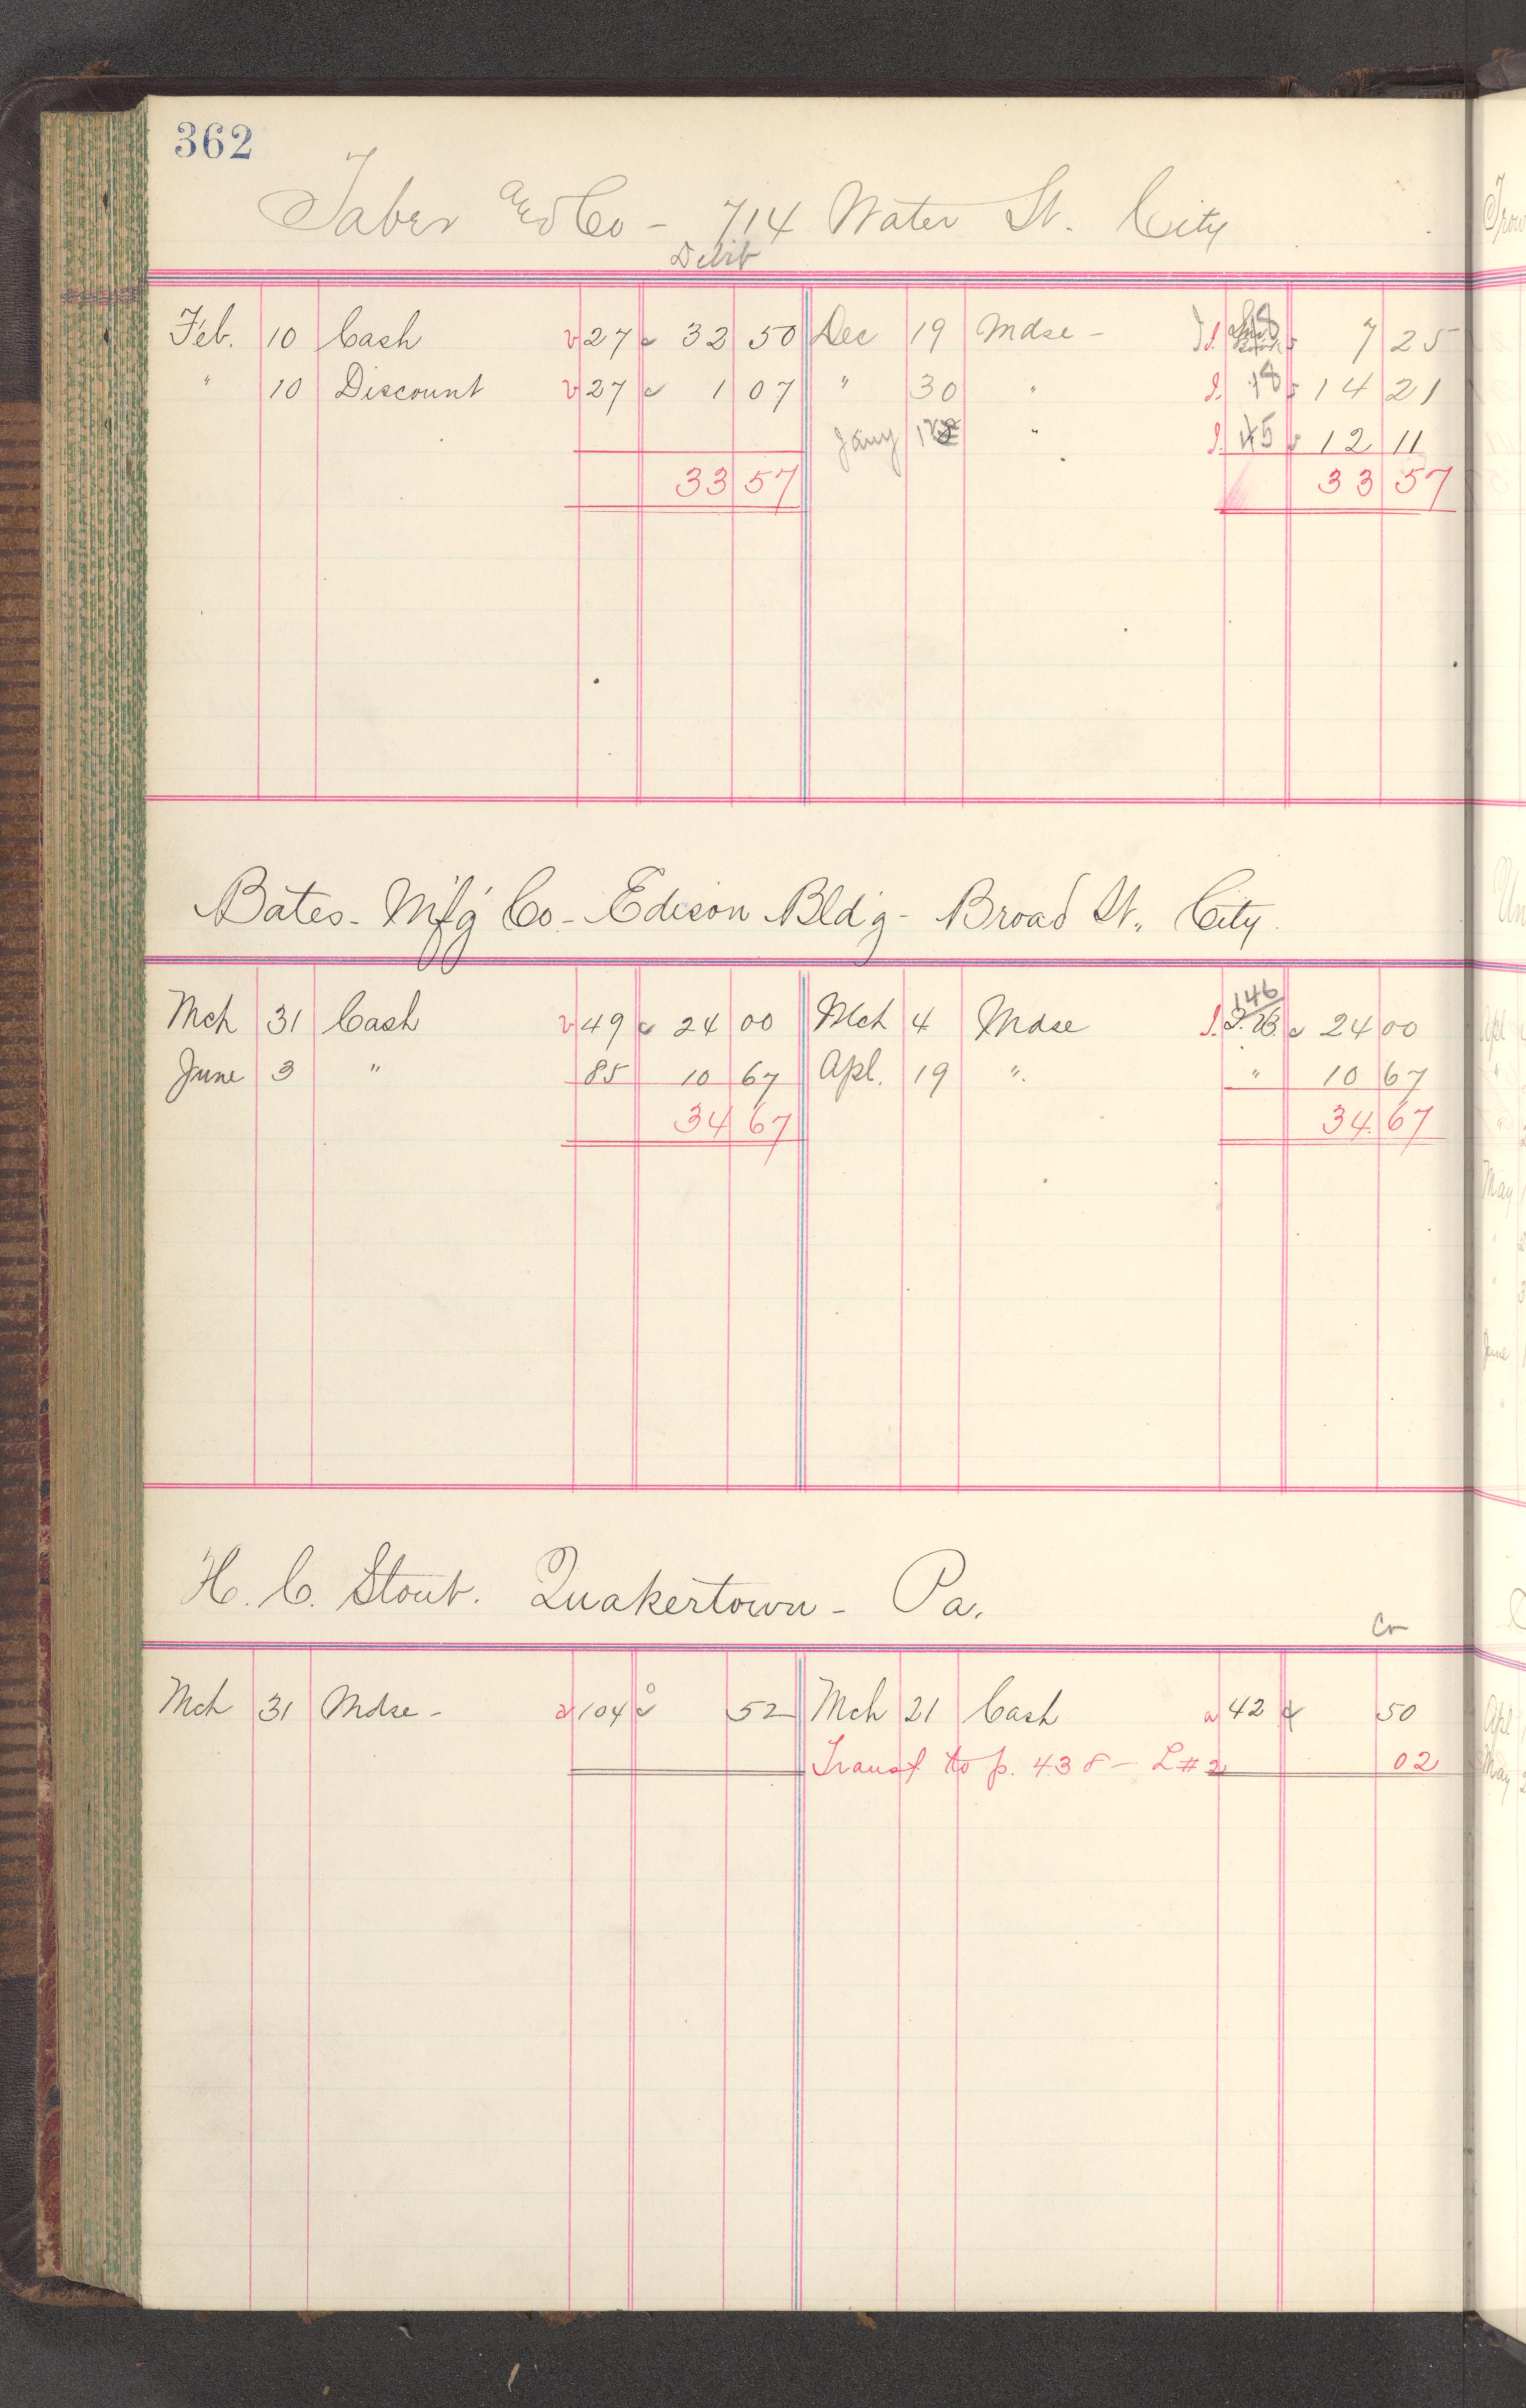 362
Taber & Co - 714 Water St. City
Debit
Feb. 10 Cash v 27 32 50 Dec 19 Mdse - J. 18 7 25
" 10 Discount v 27 1 07 " 30 " J. 18 14 21
Jany " J. 45 12 11
33 57 33 57
Bates - M'f'g Co - Edison Bld'g - Broad St., City
146
Mch 31 Cash v 49 24 00 Mch 4 Mdse J. 24 00
June 3 " 85 10 67 Apl. 19 " " 10 67
34 67 34 67
H. C. Stout. Quakertown - Pa.
Cr
Mch 31 Mdse - a 104 52 Mch 21 Cash a 42 50
Transf to p. 438 - L#2 02
Apl
May
June